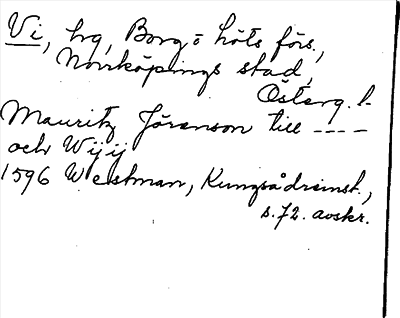 Vi, hrg, Borg o Löts förs.,
Norrköpings stad,
Österg. l.
Mauritz Jörenson till ----
och Wijij
1596 Westman, Kungsådreinst.,
s. 72. avskr.